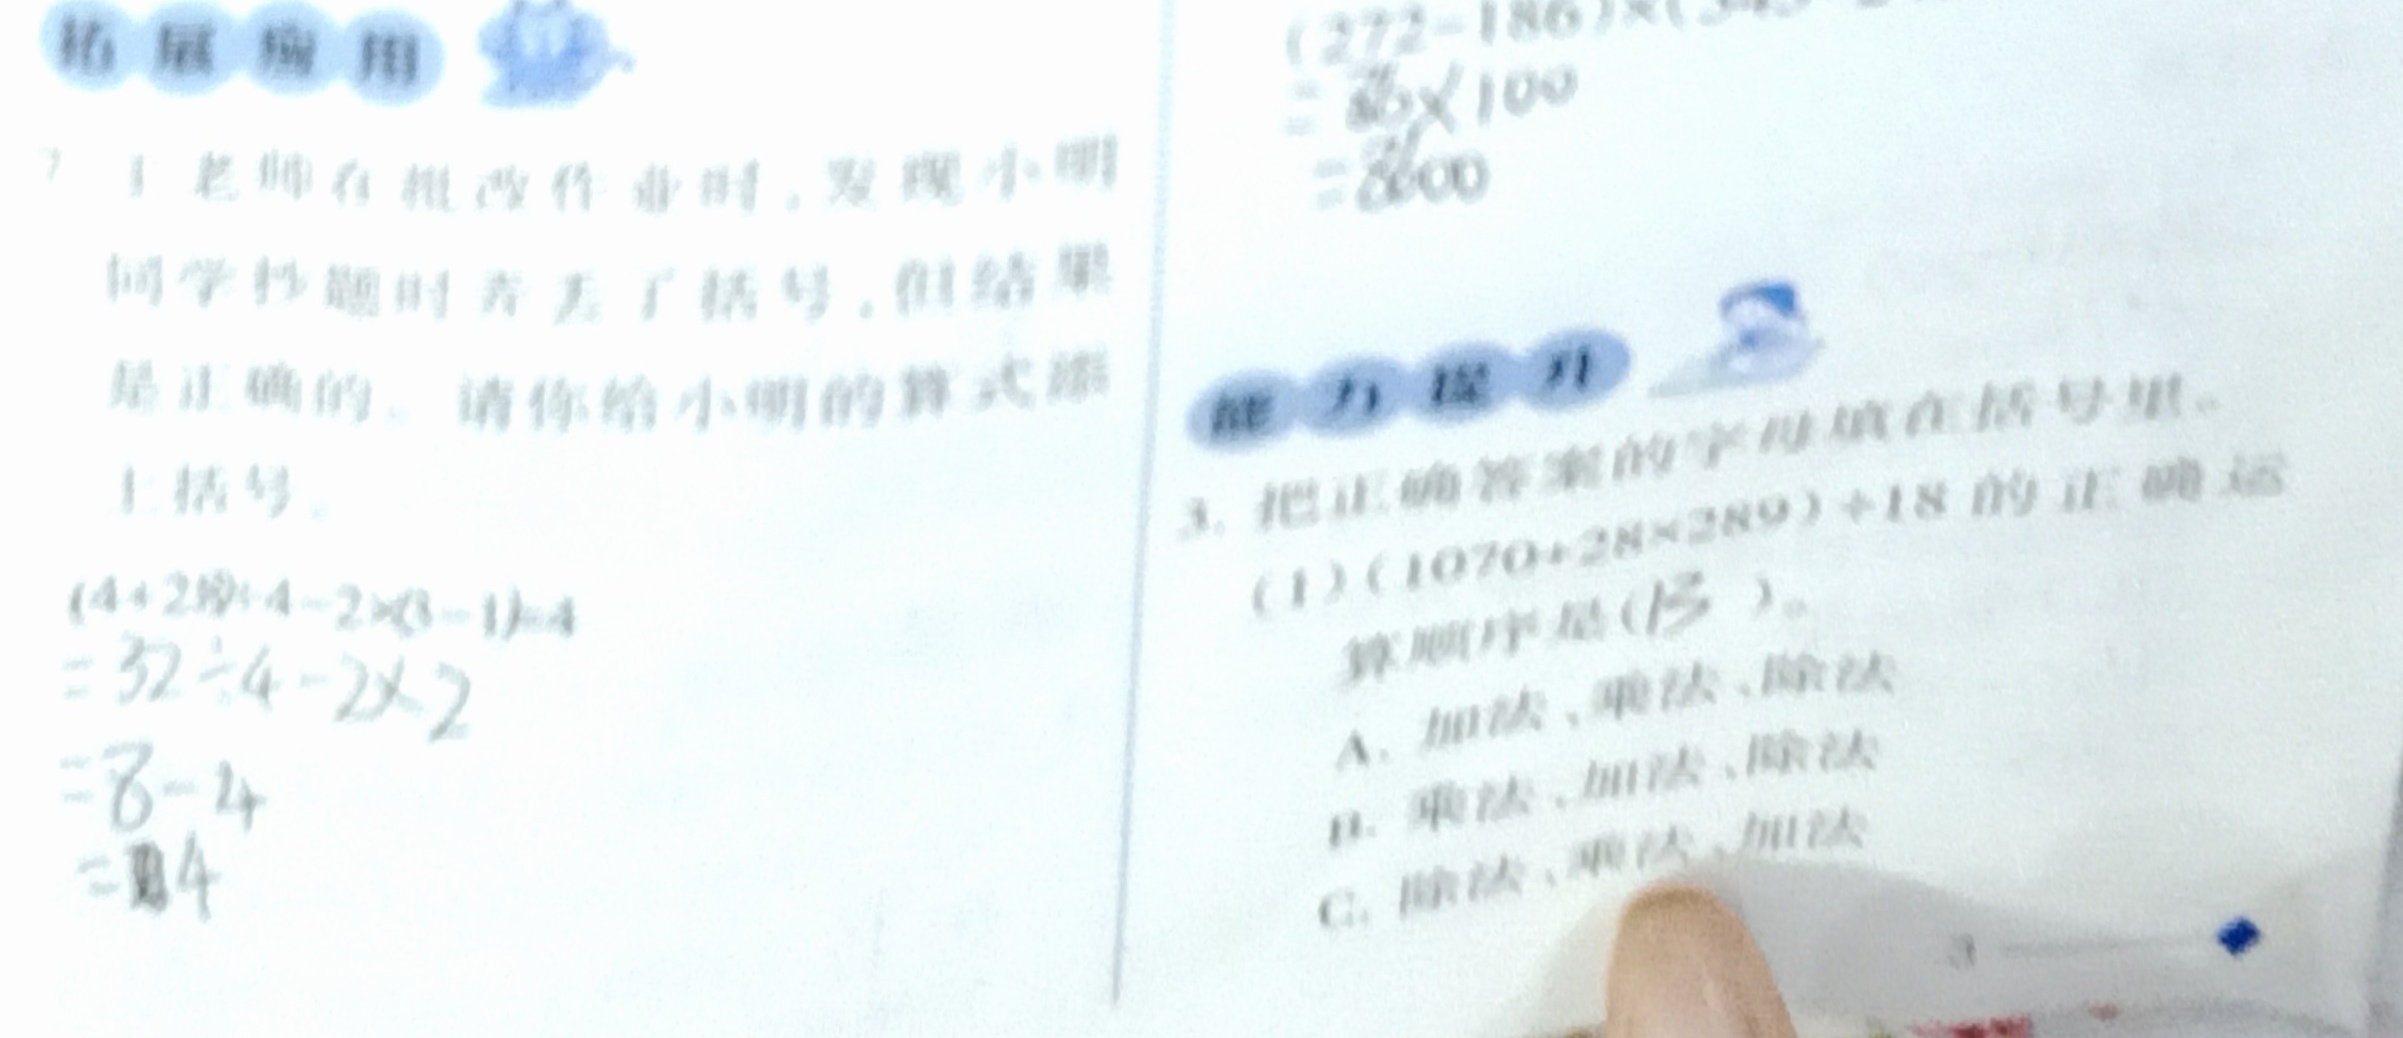 拓展应用
7 王老师在批改作业时，发现小明
同学抄题时弄丢了括号，但结果
是正确的。请你给小明的算式添
上括号。
(4+28)÷4-2×(3-1)=4
=32÷4-2×2
=8-4
=4
(272-186)×(345-2
×100
=8600
能力提升
3. 把正确答案的字母填在括号里。
(1)(1070+28×289)÷18的正确运
算顺序是(B)。
A. 加法、乘法、除法
B. 乘法、加法、除法
C. 除法、乘法、加法
3